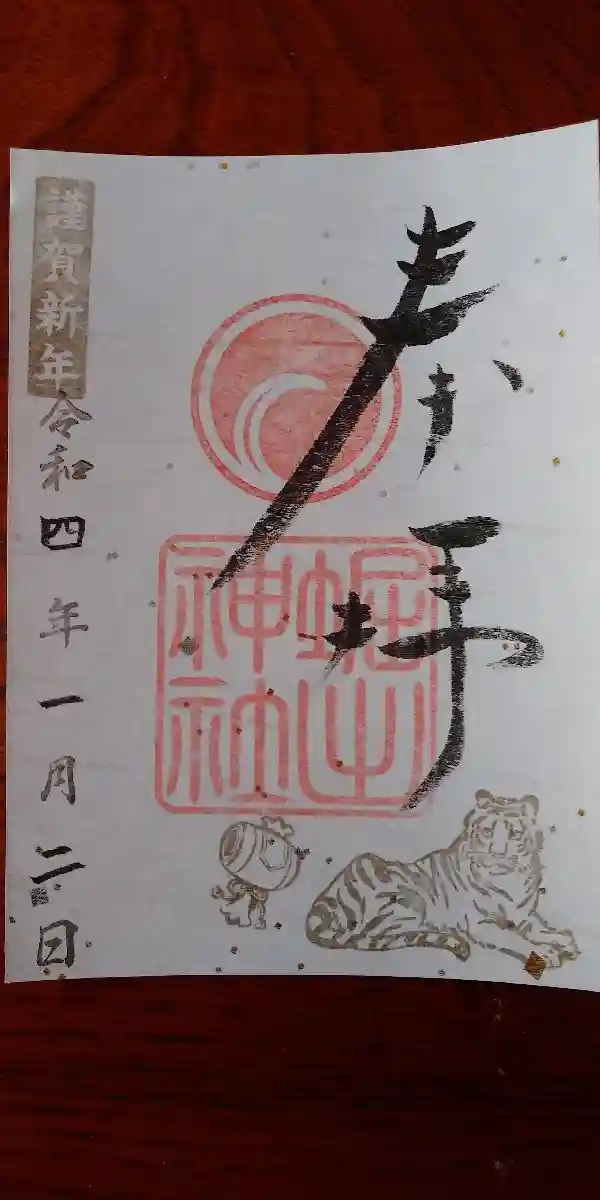 奉拝
堀出
神社
謹賀新年
令和四年一月二日